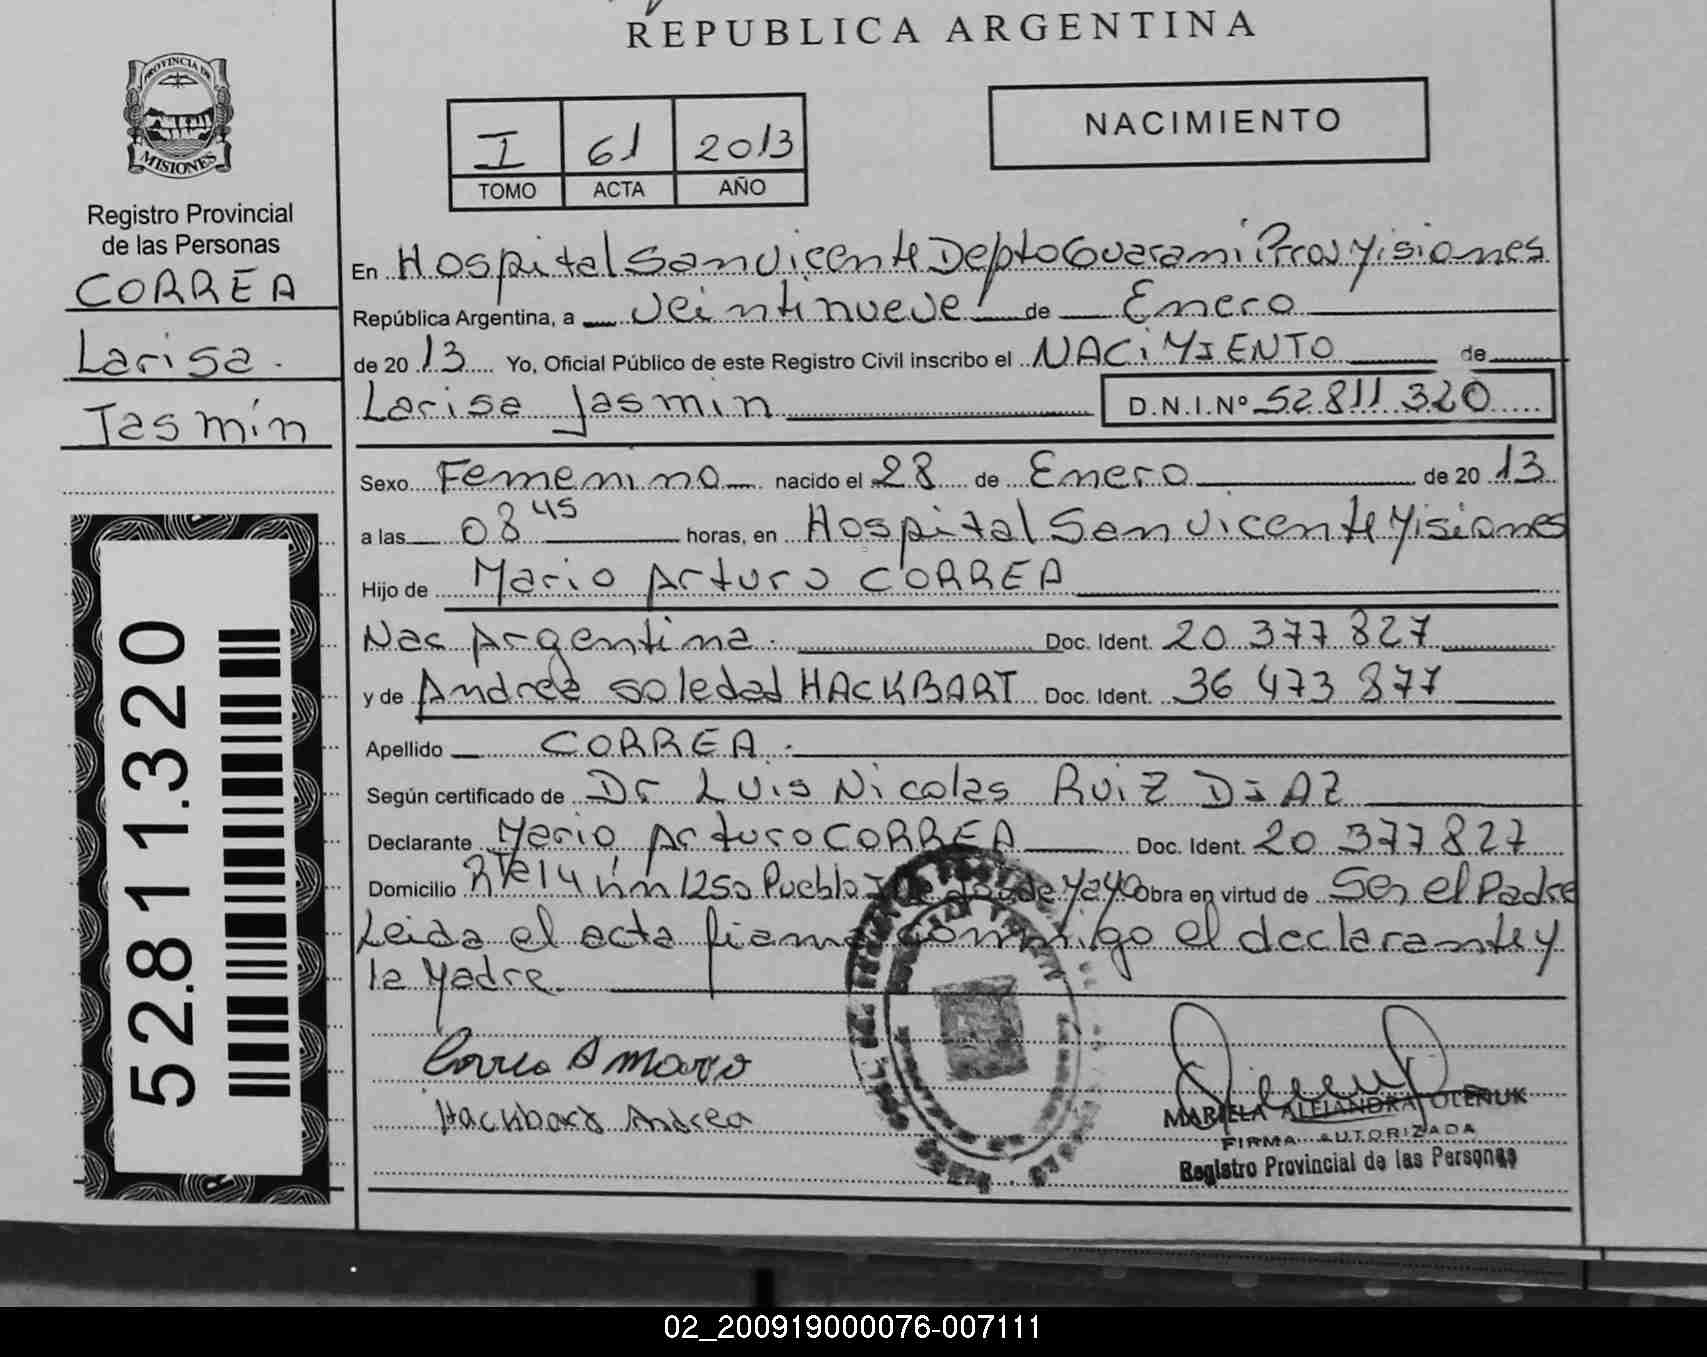 REPUBLICA ARGENTINA
PROVINCIA DE
MISIONES
Registro Provincial
de las Personas
CORREA
Larisa.
Jasmín
52.811.320
I 61 2013
TOMO ACTA AÑO
NACIMIENTO
En Hospital San Vicente Depto Guaraní Prov Misiones
República Argentina, a veintinueve de Enero
de 2013 Yo, Oficial Público de este Registro Civil inscribo el NACIMIENTO de
Larisa Jasmin D.N.I.Nº 52811320
Sexo Femenino nacido el 28 de Enero de 2013
a las 08 45 horas, en Hospital San Vicente Misiones
Hijo de Mario Arturo CORREA
Nac Argentina. Doc. Ident. 20 377 827
y de Andrea Soledad HACKBART Doc. Ident. 36 473 877
Apellido CORREA.
Según certificado de Dr Luis Nicolas Ruiz DiAZ
Declarante Mario Arturo CORREA Doc. Ident. 20 377 827
Domicilio Rte 14 km 1250 Pueblo de Mayo Obra en virtud de Ser el Padre
Leida el acta firma conmigo el declarante y
la Madre.
Correa A Mario
Hackbart Andrea
MARIELA ALEJANDRA OLEÑUK
FIRMA AUTORIZADA
Registro Provincial de las Personas
02_200919000076-007111